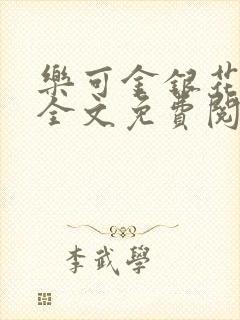 樂可金銀花
全文免費閱
李武學